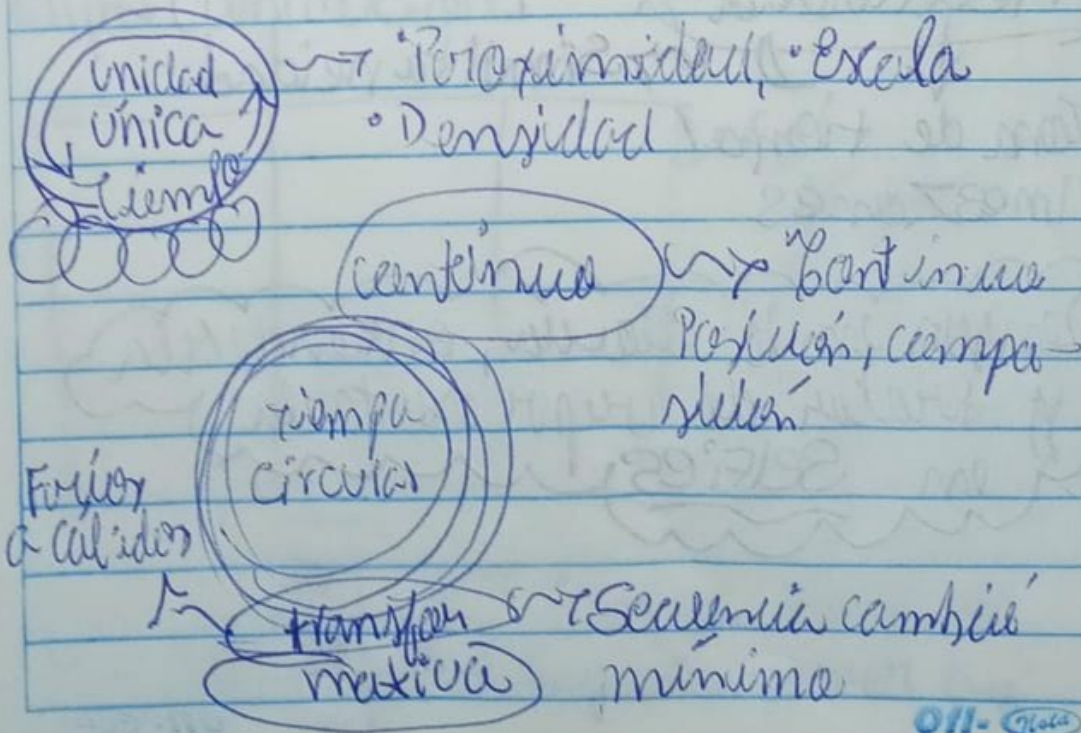 unidad
única
tiempo
• Proximidad, • Escala
• Densidad
continuo
Continuo
Posición, compo
sición
tiempo
circular
Fríos
a cálidos
transfor
mativa
Secuencia cambió
mínimo
011-